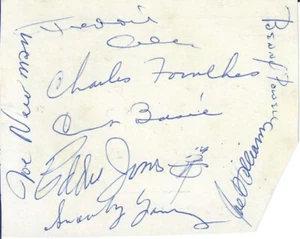 Freddie
Charles Fowlkes
Basie
Eddie Jones
Snooky Young
Joe Newman
Benny Powell
Joe Williams